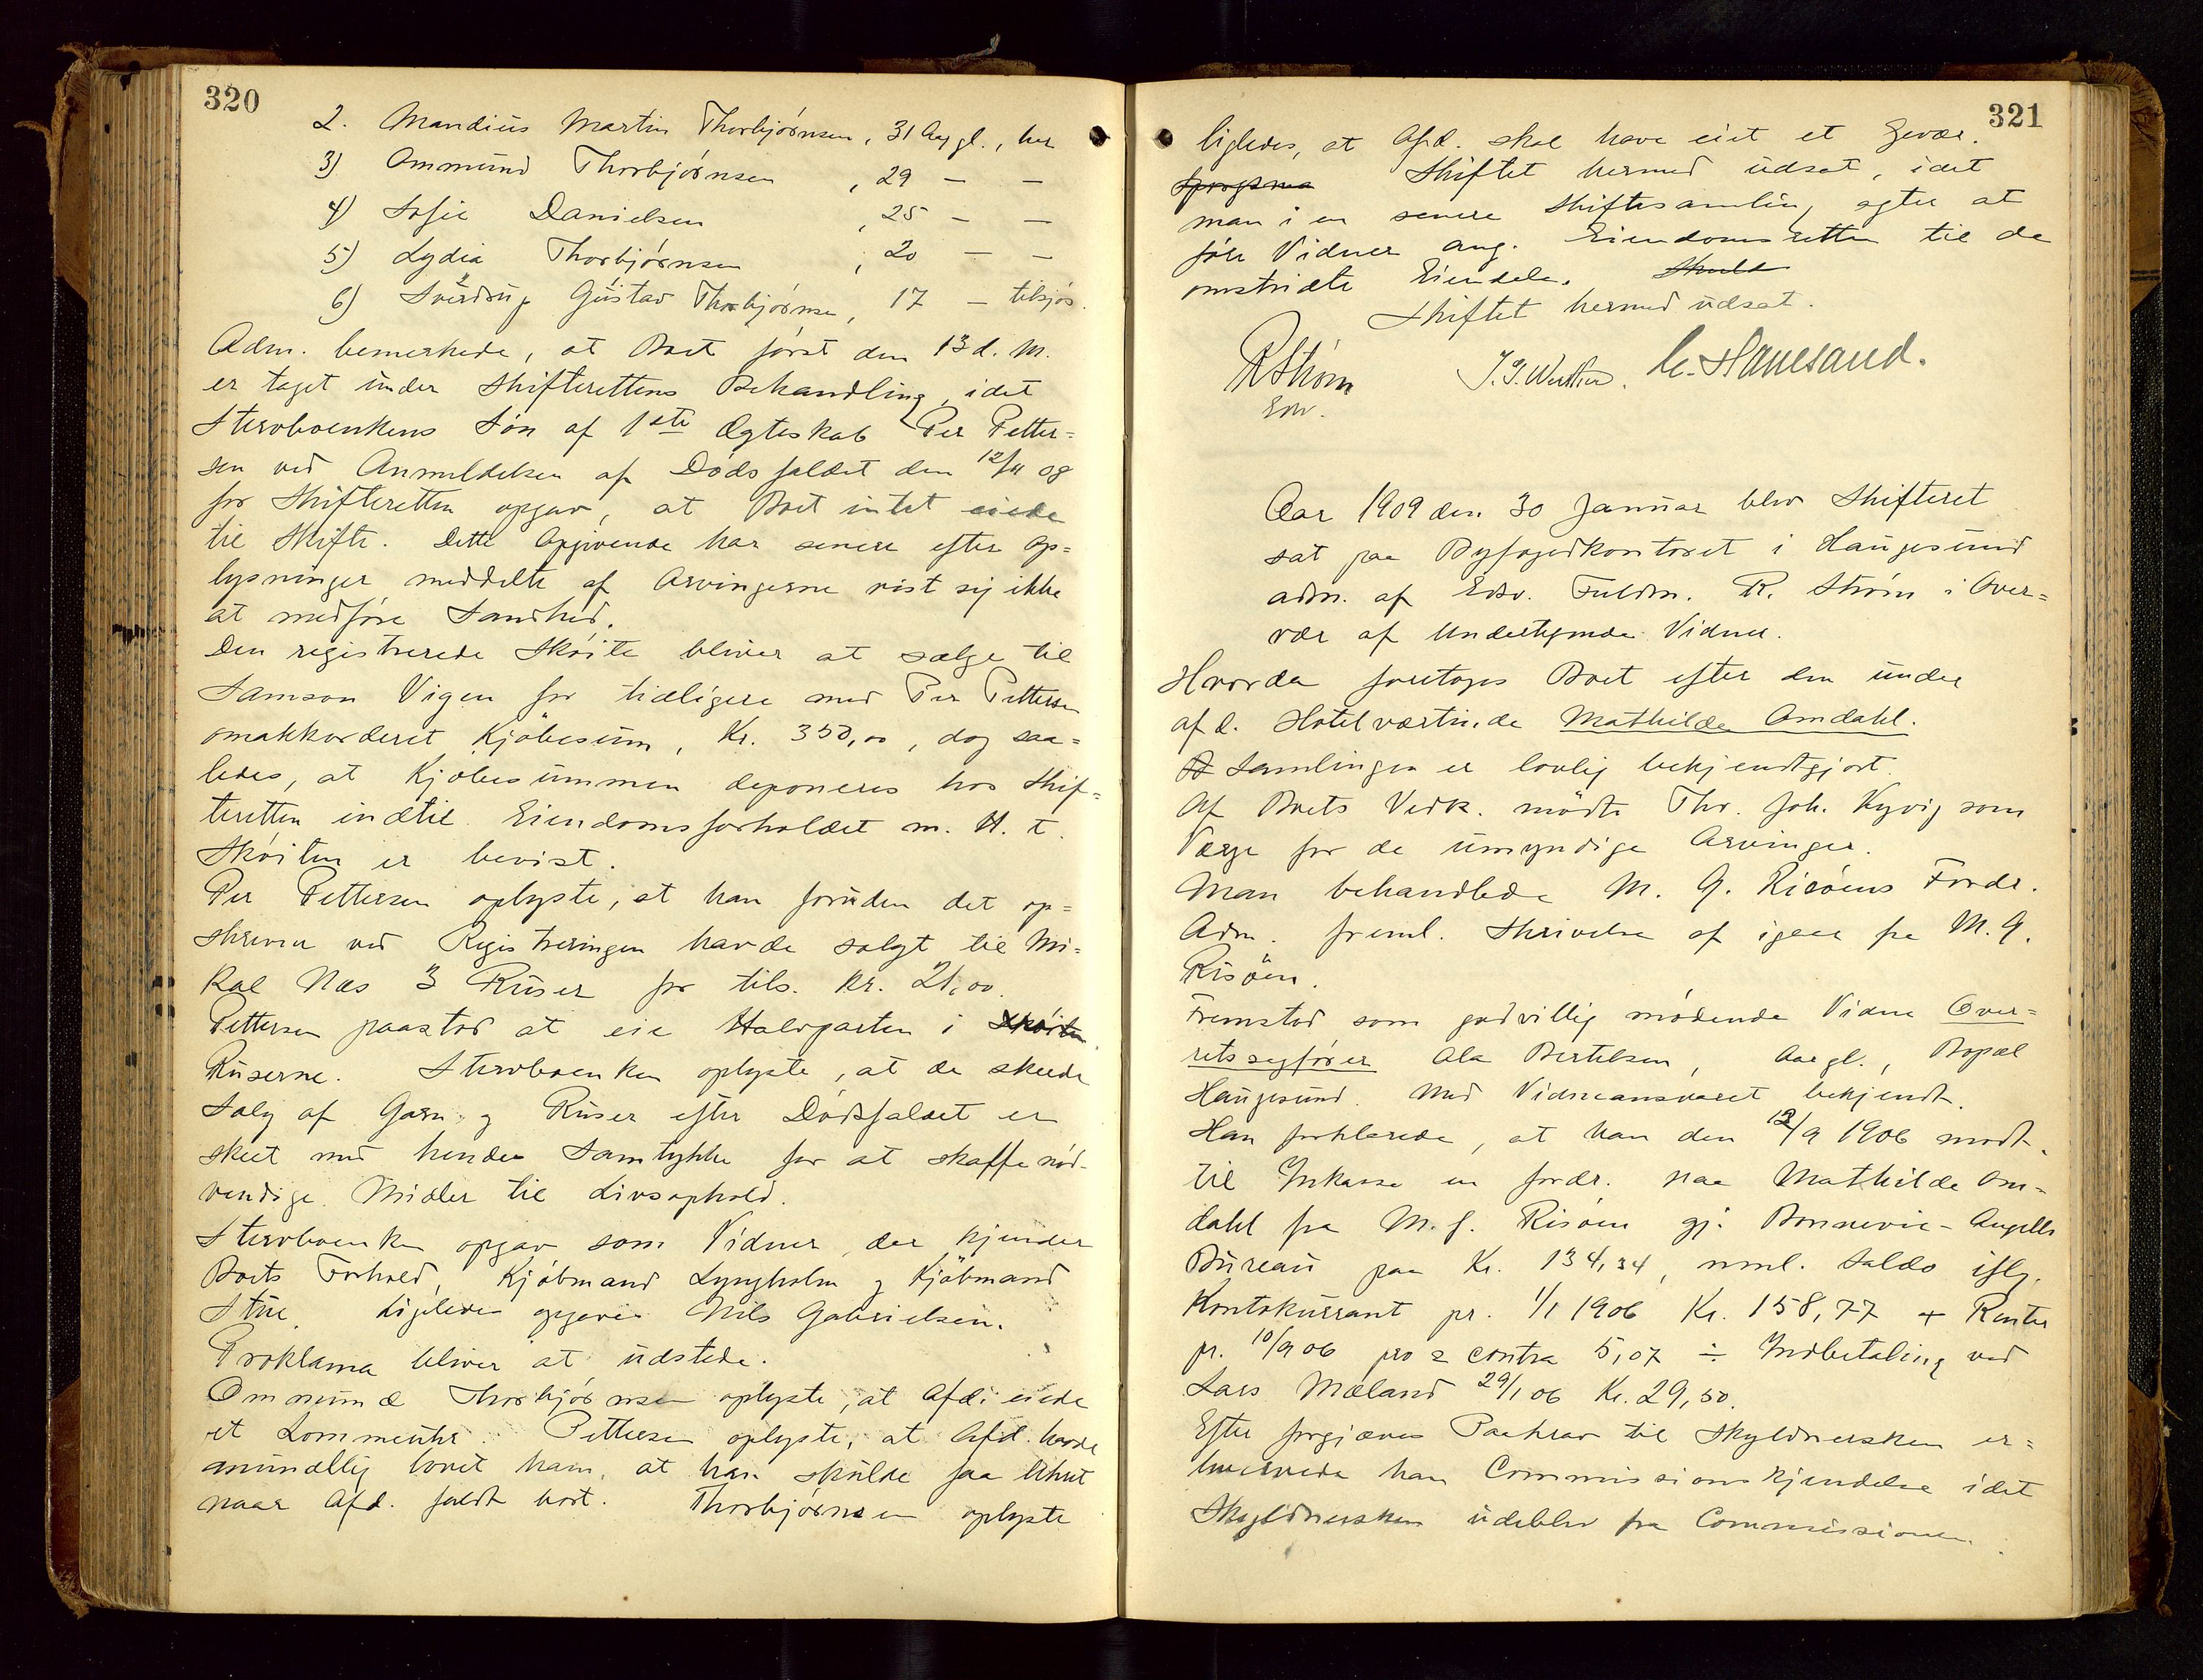 320
2. Mandius Martin Thorbjørnsen, 31 Aar gl., her
3) Ommund Thorbjørnsen, 29 — —
4) Sofie Danielsen, 25 — —
5) Lydia Thorbjørnsen, 20 — —
6) Sverdrup Gustav Thorbjørnsen, 17 — tilsjøs.
Adm. bemerkede, at Boet først den 13 d. M.
er taget under Skifterettens Behandling, idet
Stervboenkens Søn af 1ste Ægteskab Per Petter-
sen ved Anmeldelsen af Dødsfaldet den 12/11 08
for Skifteretten opgav, at Boet intet eiede
til Skifte. Dette Opgivende har senere efter Op-
lysninger meddelte af Arvingerne vist sig ikke
at medføre Sandhed.
Den registrerede Skøite bliver at sælge til
Samson Vigen for tidligere med Per Pettersen
omakkorderet Kjøbesum, Kr. 350,00, dog saa-
ledes, at Kjøbesummen deponeres hos Skif-
teretten indtil Eiendomsforholdet m. H. t.
Skøiten er bevist.
Per Pettersen oplyste, at han foruden det op-
skrevne ved Registreringen havde solgt til Mi-
kal Næs 3 Ruser for tils. Kr. 21,00.
Pettersen paastod at eie Halvparten i Skøiten
Ruserne. Stervboenken oplyste, at de skeede
Salg af Garn og Ruser efter Dødsfaldet er
skeet med hendes Samtykke for at skaffe nød-
vendige Midler til Livsophold.
Stervboenken opgav som Vidner, der kjender
Boets Forhold, Kjøbmand Lyngholm og Kjøbmand
Stue. Ligeledes opgaves Nils Gabrielsen.
Proklama bliver at udstede.
Ommund Thorbjørnsen oplyste, at Afd. eiede
et Lommeuhr. Pettersen oplyste, at Afd. havde
mundtlig lovet ham, at han skulde faa Uhret
naar Afd. faldt bort. Thorbjørnsen oplyste
321
ligledes, at Afd. skal have eiet et Gevær.
Skiftet hermed udsat, idet
man i en senere Skiftesamling agter at
føre Vidner ang. Eiendomsretten til de
omstridte Eiendele. Skuld
Skiftet hermed udsat.
R Strøm J. J. C. Hanesand.
Edv.
Aar 1909 den 30 Januar blev Skifteret
sat paa Byfogedkontoret i Haugesund
adm. af Edsv. Fuldm. R. Strøm i Over-
vær af undertegnede Vidner.
Hvorda foretoges Boet efter den under
afd. Hotelværtinde Mathilde Amdahl.
Samlingen er lovlig bekjendtgjort.
Af Boets Vedk. mødte Thv. Joh. Kyvig som
Værge for de umyndige Arvinger.
Man behandlede M. G. Risøens Fordr.
Adm. freml. Skrivelse af igaar fra M. G.
Risøen.
Fremstod som godvillig mødende Vidne Over-
retssagfører Ola Bertelsen, Aar gl., Bopæl
Haugesund. Med Vidneansvaret bekjendt.
Han forklarede, at han den 12/9 1906 modt.
til Inkasso en fordr. paa Mathilde Am-
dahl fra M. G. Risøen gj. Bonnevie-Angells
Bureau paa Kr. 134,34, neml. Saldo iflg.
Kontokurrant pr. 1/1 1906 Kr. 158,77 + Renter
pr. 10/9 06 pro & contra 5,07 ÷ Indbetaling ved
Lars Mæland 29/1 06 Kr. 29,50.
Efter forgjæves Paakrav til Skyldnersken er-
hvervede han Commissionskjendelse idet
Skyldnersken udeblev fra Commissionen.